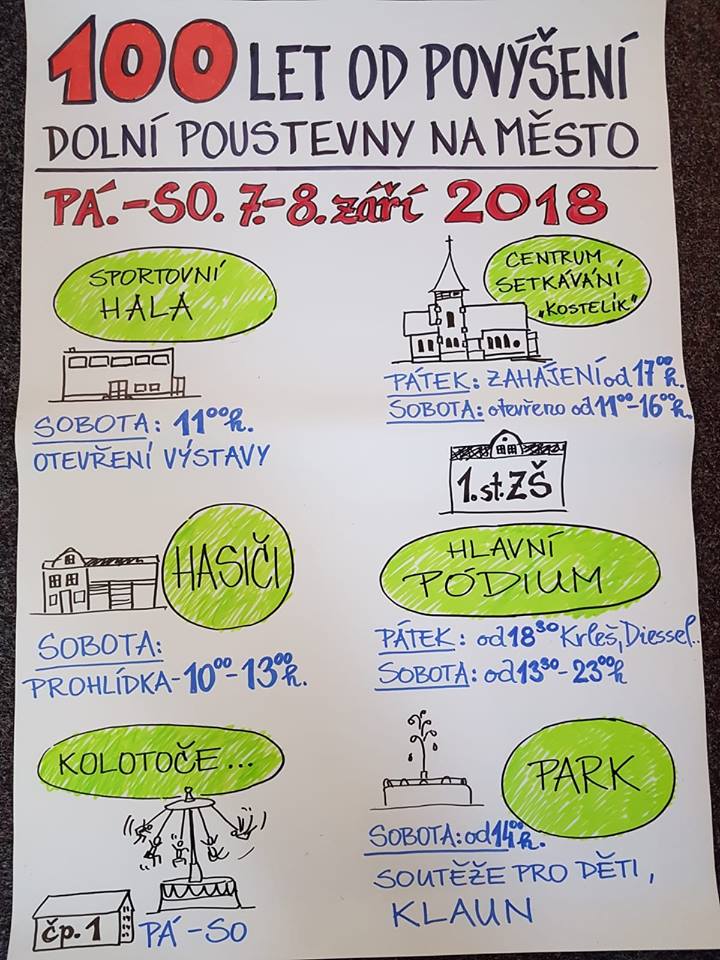 100 LET OD POVÝŠENÍ
DOLNÍ POUSTEVNY NA MĚSTO
PÁ.-SO. 7.-8. září 2018
SPORTOVNÍ
HALA
SOBOTA: 11⁰⁰h.
OTEVŘENÍ VÝSTAVY
CENTRUM
SETKÁVÁNÍ
„KOSTELÍK"
PÁTEK: ZAHÁJENÍ od 17⁰⁰h.
SOBOTA: otevřeno od 11⁰⁰-16⁰⁰h.
1.st. ZŠ
HASIČI
SOBOTA:
PROHLÍDKA-10⁰⁰-13⁰⁰h.
HLAVNÍ
PÓDIUM
PÁTEK: od 18³⁰ Krleš, Diessel..
SOBOTA: od 13³⁰-23⁰⁰h
KOLOTOČE...
čp. 1
PÁ-SO
PARK
SOBOTA: od 14⁰⁰h.
SOUTĚŽE PRO DĚTI,
KLAUN